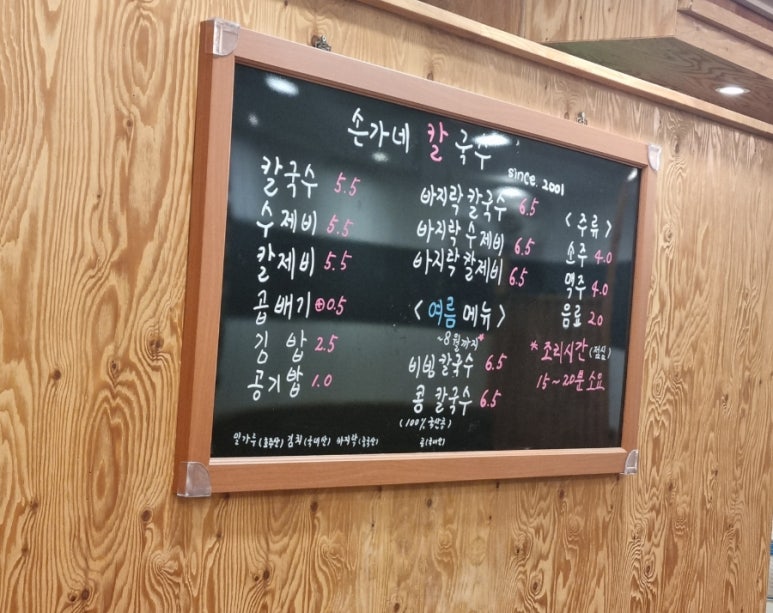 손가네 칼국수
since. 2001
칼국수 5.5
수제비 5.5
칼제비 5.5
곱배기 ⊕0.5
김 밥 2.5
공기밥 1.0
바지락 칼국수 6.5
바지락 수제비 6.5
바지락 칼제비 6.5
<여름 메뉴>
~8월까지*
비빔 칼국수 6.5
콩 칼국수 6.5
(100% 국산콩)
<주류>
소주 4.0
맥주 4.0
음료 2.0
*조리시간 (점심)
15~20분 소요
밀가루 (호주산) 김치 (국내산) 바지락 (중국산)
콩 (국내산)